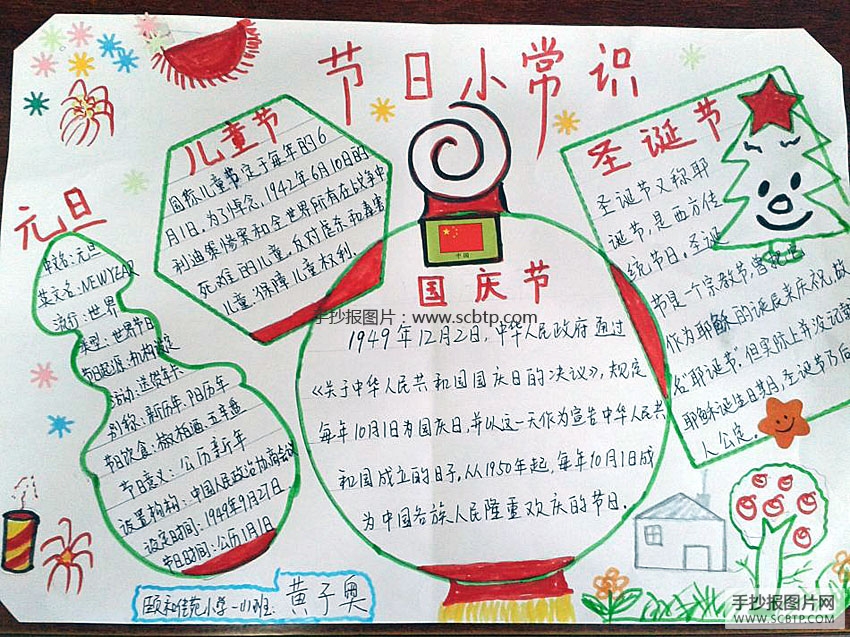 节日小常识
儿童节
国际儿童节定于每年的6
月1日。为了悼念1942年6月10日的
利迪策惨案和全世界所有在战争中
死难的儿童，反对虐杀和毒害
儿童，保障儿童权利。
元旦
中文名：元旦
英文名：NEWYEAR
流行：世界
类型：世界节日
节日起源：机构设定
活动：送贺年卡
别称：新历年、阳历年
节日饮食：椒柏酒、五辛盘
节日意义：公历新年
设置机构：中国人民政治协商会议
设定时间：1949年9月27日
节日时间：公历1月1日
中国
国庆节
手抄报图片：www.scbtp.com
1949年12月2日，中华人民政府通过
《关于中华人民共和国国庆日的决议》，规定
每年10月1日为国庆日，并以这一天作为宣告中华人民共
和国成立的日子。从1950年起，每年10月1日成
为中国各族人民隆重欢庆的节日。
圣诞节
圣诞节又称耶
诞节，是西方传
统节日。圣诞
节是一个宗教节，曾把它
作为耶稣的诞辰来庆祝，故
名"耶诞节"。但实际上并没记载
耶稣诞生日其月，圣诞节乃后
人公定。
颐和佳苑小学一(1)班：黄子奥
手抄报图片网
WWW.SCBTP.COM